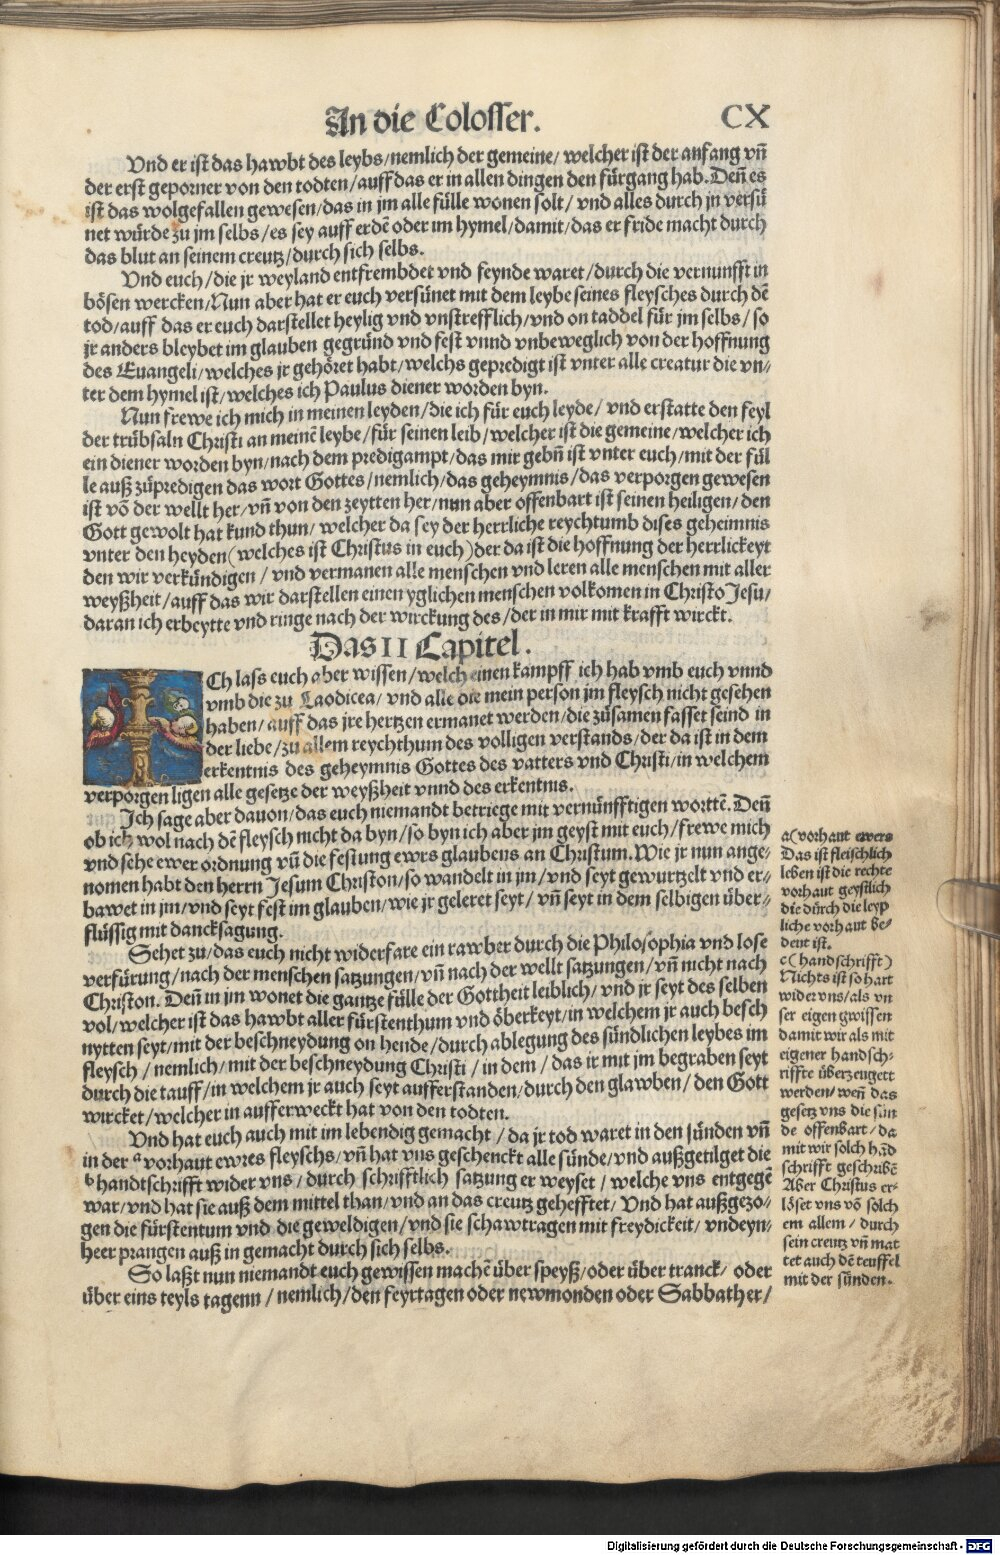 An die Colosser. CX
Vnd er ist das hawbt des leybs/nemlich der gemeine/ welcher ist der anfang vñ
der erst geporner von den todten/auff das er in allen dingen den fürgang hab. Deñ es
ist das wolgefallen gewesen/das in jm alle fülle wonen solt/ vnd alles durch jn versü
net würde zu jm selbs/es sey auff erdẽ oder im hymel/damit/das er fride macht durch
das blut an seinem creutz/durch sich selbs.
Vnd euch/die jr weyland entfrembdet vnd feynde waret/durch die vernunfft in
bösen wercken/Nun aber hat er euch versünet mit dem leybe seines fleysches durch dẽ
tod/auff das er euch darstellet heylig vnd vnstrefflich/vnd on taddel für jm selbs/ so
jr anders bleybet im glauben gegründ vnd fest vnnd vnbeweglich von der hoffnung
des Euangeli/welches jr gehöret habt/welchs gepredigt ist vnter alle creatur die vn/
ter dem hymel ist/welches ich Paulus diener worden byn.
Nun frewe ich mich in meinen leyden/die ich für euch leyde/ vnd erstatte den feyl
der trübsaln Christi an meinẽ leybe/für seinen leib/welcher ist die gemeine/welcher ich
ein diener worden byn/nach dem predigampt/das mir gebñ ist vnter euch/mit der fül
le auß züpredigen das wort Gottes/nemlich/das geheymnis/das verporgen gewesen
ist võ der wellt her/vñ von den zeytten her/nun aber offenbart ist seinen heiligen/ den
Gott gewolt hat kund thun/ welcher da sey der herrliche reychtumb dises geheimnis
vnter den heyden(welches ist Christus in euch)der da ist die hoffnung der herrlickeyt
den wir verkündigen / vnd vermanen alle menschen vnd leren alle menschen mit aller
weyßheit/auff das wir darstellen einen yglichen menschen volkomen in Christo Jesu/
daran ich erbeytte vnd ringe nach der wirckung des/der in mir mit krafft wirckt.
Das II Capitel.
Ch lass euch aber wissen/welch einen kampff ich hab vmb euch vnnd
vmb die zu Laodicea/ vnd alle die mein person jm fleysch nicht gesehen
haben/auff das jre hertzen ermanet werden/die züsamen fasset seind in
der liebe/zu allem reychthum des volligen verstands/der da ist in dem
erkentnis des geheymnis Gottes des vatters vnd Christi/in welchem
verporgen ligen alle gesetze der weyßheit vnnd des erkentnis.
Ich sage aber dauon/das euch niemandt betriege mit vernünfftigen worttẽ. Deñ
ob ich wol nach dẽ fleysch nicht da byn/so byn ich aber jm geyst mit euch/frewe mich
vnd sehe ewer ordnung vñ die festung ewrs glaubens an Christum.Wie jr nun ange/
nomen habt den herrn Jesum Christon/so wandelt in jm/vnd seyt gewurtzelt vnd er/
bawet in jm/vnd seyt fest im glauben/wie jr geleret seyt/ vñ seyt in dem selbigen über/
flüssig mit dancksagung.
Sehet zu/das euch nicht widerfare ein rawber durch die Philosophia vnd lose
verfürung/nach der menschen satzungen/vñ nach der wellt satzungen/vñ nicht nach
Christon. Deñ in jm wonet die gantze fülle der Gottheit leiblich/ vnd jr seyt des selben
vol/welcher ist das hawbt aller fürstenthum vnd öberkeyt/in welchem jr auch besch
nytten seyt/mit der beschneydung on hende/durch ablegung des sündlichen leybes im
fleysch / nemlich/mit der beschneydung Christi / in dem / das ir mit jm begraben seyt
durch die tauff/in welchem jr auch seyt aufferstanden/durch den glawben/ den Gott
wircket/welcher in aufferweckt hat von den todten.
Vnd hat euch auch mit im lebendig gemacht / da jr tod waret in den sünden vñ
in der ᵃvorhaut ewres fleyschs/vñ hat vns geschenckt alle sünde/vnd außgetilget die
ᵇhandtschrifft wider vns / durch schrifftlich satzung er weyset / welche vns entgegẽ
war/vnd hat sie auß dem mittel than/vnd an das creutz gehefftet/ Vnd hat außgezo/
gen die fürstentum vnd die geweldigen/vnd sie schawtragen mit freydickeit/ vndeyn/
heer prangen auß in gemacht durch sich selbs.
So laßt nun niemandt euch gewissen machẽ über speyß/oder über tranck/ oder
über eins teyls tagenn / nemlich/den feyrtagen oder newmonden oder Sabbather/
a(vorhaut ewers
Das ist fleischlich
leben ist die rechte
vorhaut geystlich
die dürch die leyp
liche vorhaut be/
deut ist.
c(handschrifft)
Nichts ist so hart
wider vns/als vn
ser eigen gwissen
damit wir als mit
eigener handsch/
riffte überzeugett
werden/ weñ das
gesetz vns die sün
de offenbart/da
mit wir solch hãd
schrifft geschribẽ
Aber Christus er/
löset vns võ solch
em allem / durch
sein creutz vñ mat
tet auch dẽ teuffel
mit der sünden.
Digitalisierung gefördert durch die Deutsche Forschungsgemeinschaft - DFG